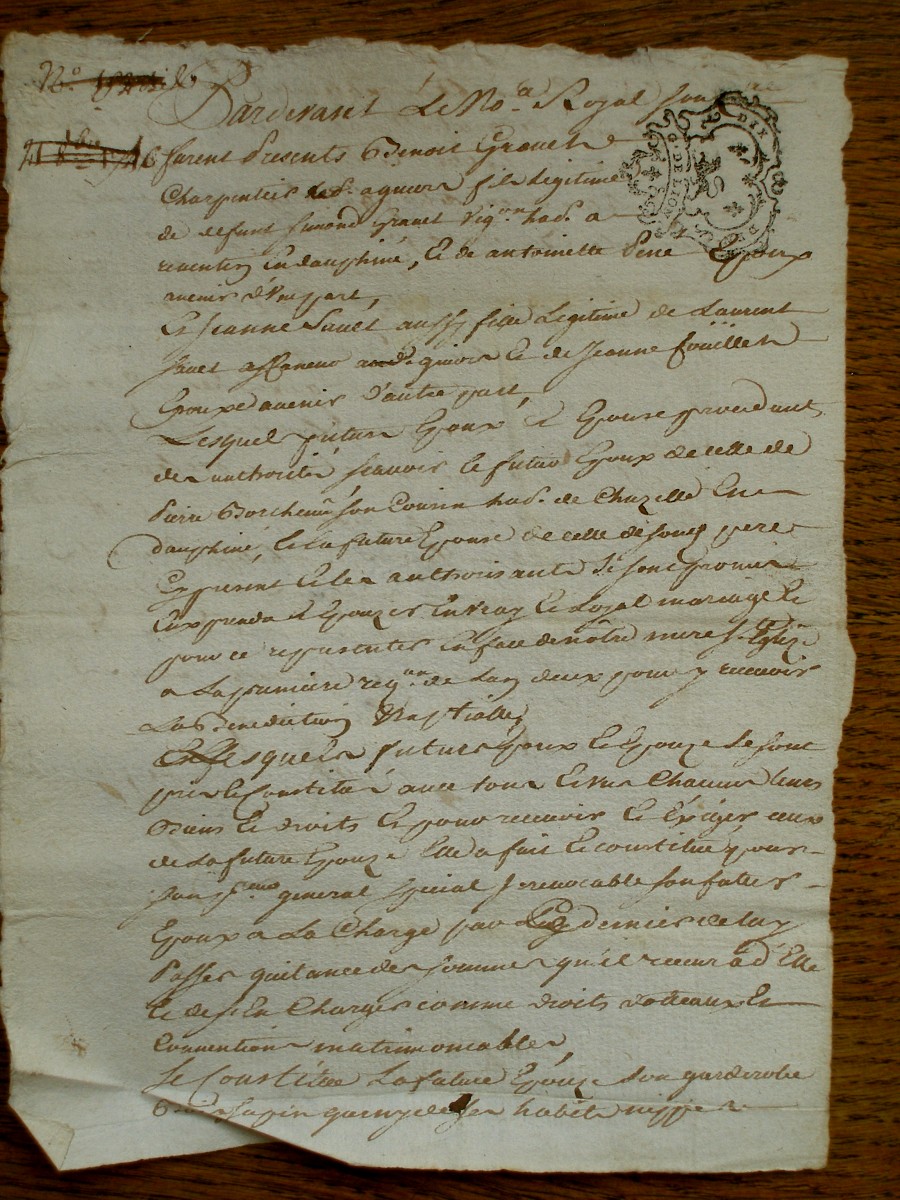 N.o
Pardevant Le No.re Royal sou
furent Presents Benoit Gronet
Charpentier fils Legitime
de defunt Simond Gronet Vig.on had. a
en dauphiné, Et de antoinette Pene Epoux
avenir d'une part,
Et Jeanne Sauet aussy fille Legitime de Laurent
Sauet affaneur de Jeanne fouillet
Epouze avenir d'autre part,
Lesquel futur Epoux & Epouse procedant
de authorité scauoir le futur Epoux de celle de
Pierre son Cousin had. de Chazelle En
dauphiné, Et la future Epouse de celle de son pere
Cy present et les authorisant Se sont promis
Se prendre & Epouzer En vray Et Loyal mariage Et
pour ce representer En face de nôtre mere S.te Eglize
a La premiere req.on de L'un deux pour y recevoir
La Benediction Nuptialle,
Lesquels futurs Epoux Et Epouze Se sont
pris Et Constitué avec tous Et Uns Chacuns leurs
Biens Et droits Et pour recevoir Et Exiger ceux
de La future Epouze Elle a fait Et Constitué pour
son general special Irrevocable son futur
Epoux a La Charge par dernier de luy
Passer quitance des sommes qu'il recevra d'Elle
Et de s'En Charger comme droits dotteaux Et
Convention matrimonialles,
Se Constitue La future Epouze Son garderobe
Bois sapin garny de ses habits nippes
DIX
DEN
G. DE LION